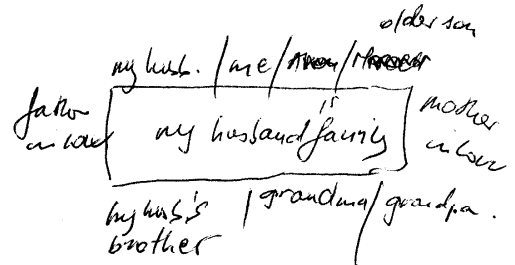 older son
my husb. / me /
father in law
my husband's family
mother in law
my husb's brother
/ grandma / grandpa.